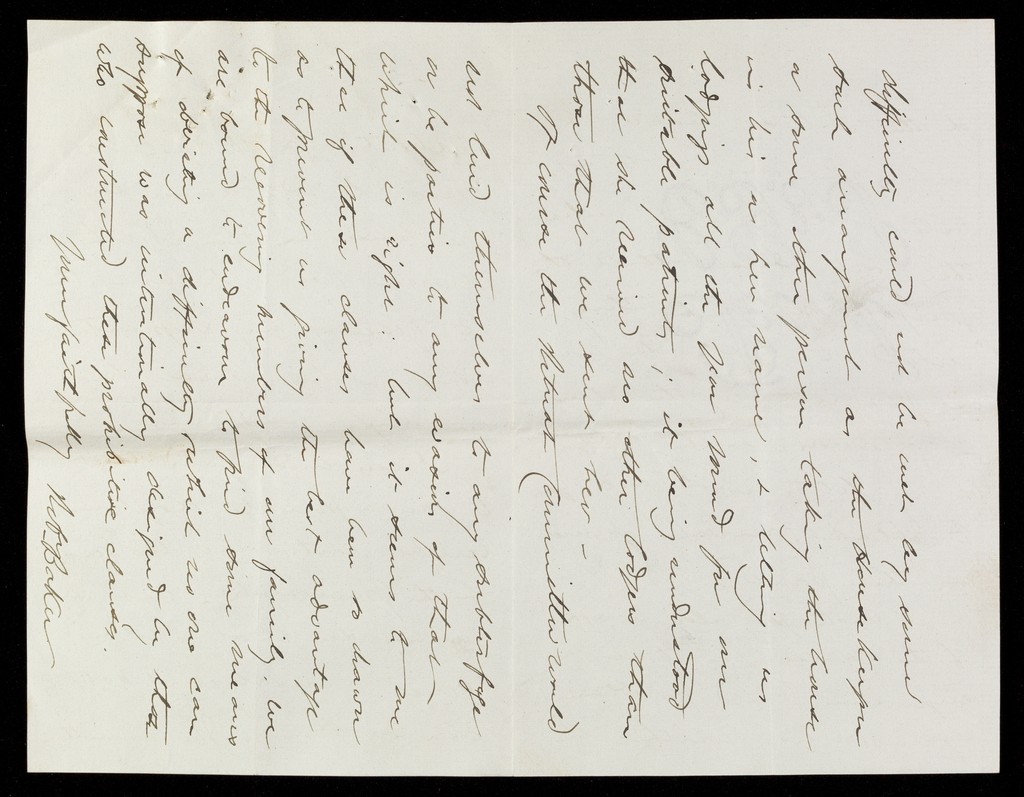 difficulty could not be met by some
such arrangement as the Housekeeper
or some other person taking the house
in his or her name, & letting us
lodgings all the year round for our
suitable patients; it being understood
that she received no other lodgers than
those that we sent her –
Of course the Retreat Committee would
not lend themselves to any subterfuge
or be parties to any evasion of that
which is right: but it seems to me
that if these clauses have been so drawn
as to prevent us giving the best advantage
to the recovering members of our family, we
are bound to endeavour to find some means
of evading a difficulty which no one can
suppose was intentionally designed by those
who constructed these prohibitive clauses.
Yours faithfully Robt Baker